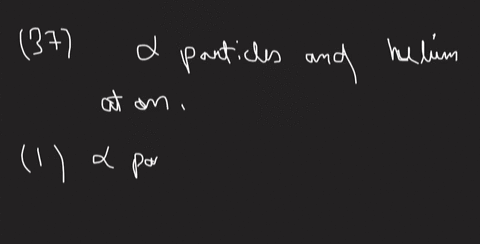 (37) α particles and helium
atom.
(1) α pa